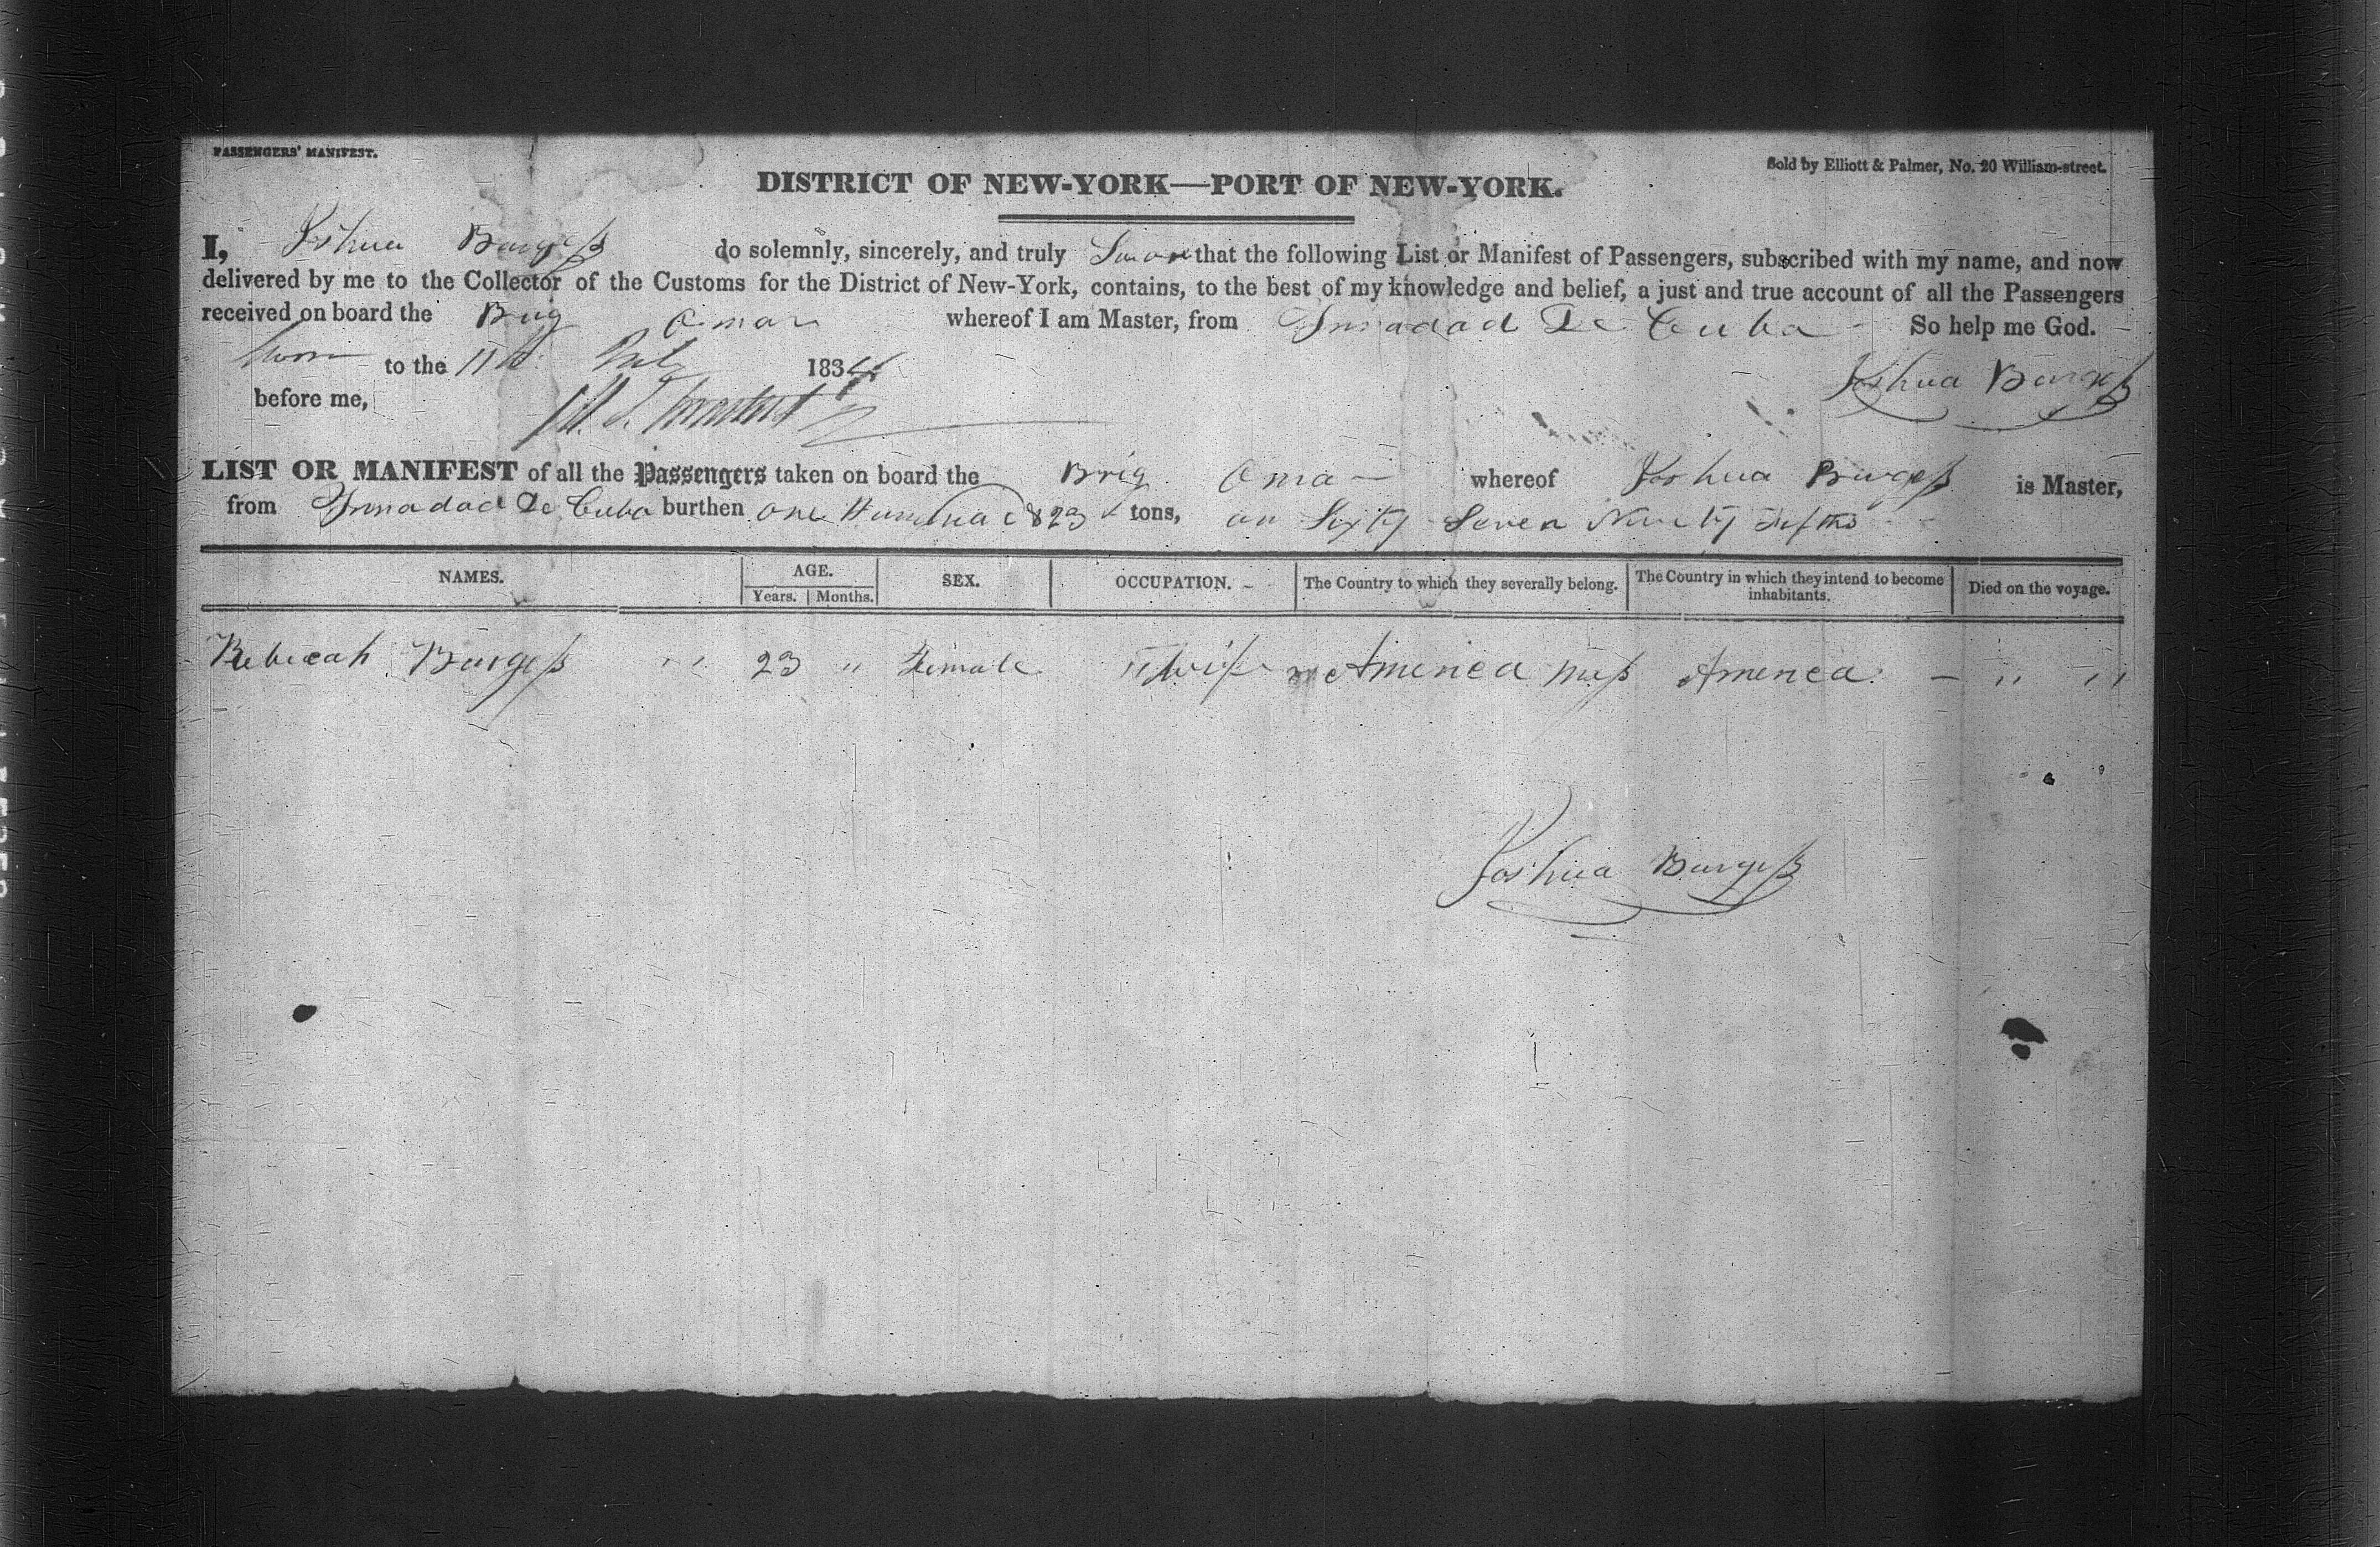 PASSENGERS' MANIFEST.
Sold by Elliott & Palmer, No. 20 William-street.
DISTRICT OF NEW-YORK—PORT OF NEW-YORK.
I, Joshua Burgess do solemnly, sincerely, and truly Swore that the following List or Manifest of Passengers, subscribed with my name, and now
delivered by me to the Collector of the Customs for the District of New-York, contains, to the best of my knowledge and belief, a just and true account of all the Passengers
received on board the Brig Omar whereof I am Master, from Trinadad De Cuba So help me God.
Sworn to the 11th July 1834
Joshua Burgess
before me,
LIST OR MANIFEST of all the Passengers taken on board the Brig Omar whereof Joshua Burgess is Master,
from Trinadad De Cuba burthen one Hundred & 23 tons, an Sixty Seven Ninety Fifths
NAMES. AGE. SEX. OCCUPATION. The Country to which they severally belong. The Country in which they intend to become inhabitants. Died on the voyage.
Years. Months.
Rebecah Burgess " 23 " Female " Wife America Mass America - " "
Joshua Burgess